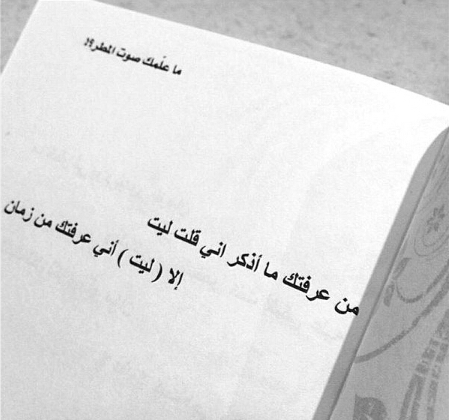 ما علّمك صوت المطر؟!
من عرفتك ما أذكر اني قلت ليت
إلا ( ليت ) أني عرفتك من زمان